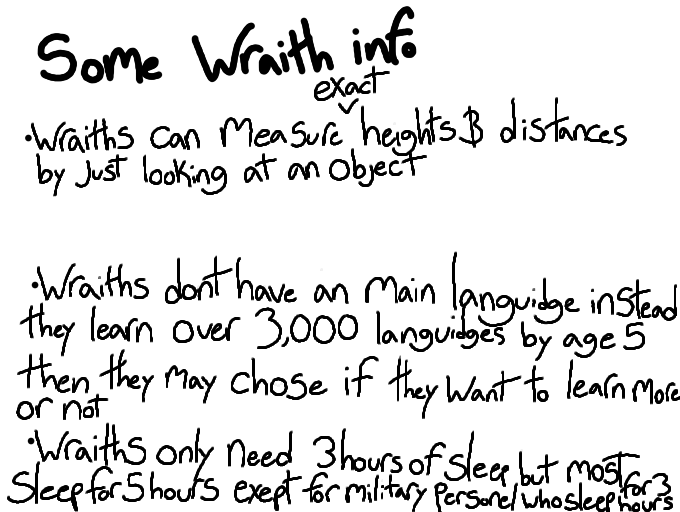 Some Wraith info
exact
•Wraiths can measure heights & distances
by Just looking at an object
•Wraiths dont have an main languidge instead
they learn over 3,000 languidges by age 5
then they may chose if they want to learn more
or not
•Wraiths only need 3 hours of sleep but most
Sleep for 5 hours exept for military personel who sleep for 3 hours